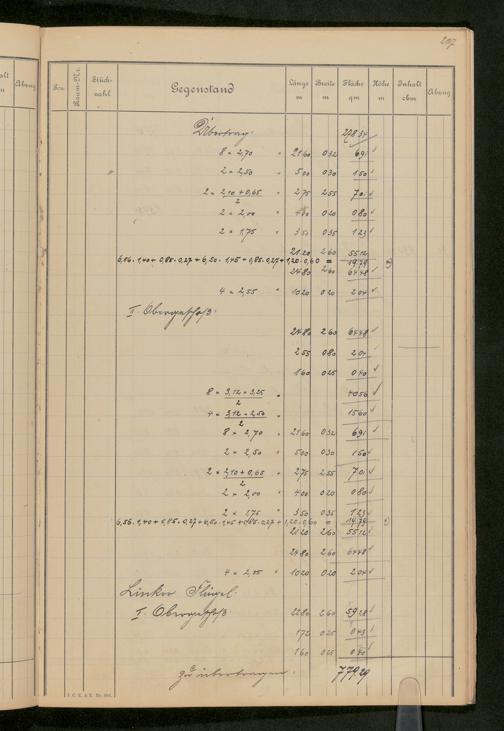 297
Pos.
Raum-Nr.
Stückzahl
Gegenstand
Länge m
Breite m
Fläche qm
Höhe m
Inhalt cbm
Abzug
Übertrag: 298 34
8 × 2,70 " 21 60 0 32 6 91
2 × 2,50 " 5 00 0 30 1 50
2 × 2,10 + 0,65 / 2 " 2 75 2 55 7 01
2 × 2,00 " 4 00 0 20 0 80
2 × 1,75 " 3 50 0 35 1 23
21 20 2 60 55 12
6,56 · 1,40 + 0,85 · 0,27 + 6,50 · 1,45 + 0,85 · 0,27 + 1,20 · 0,60 = 19 79
24 80 2 60 64 48
4 × 2,55 " 10 20 0 20 2 04
I. Obergeschoß:
24 80 2 60 64 48
2 55 0 80 2 04
1 60 0 25 0 40
8 × 3,12 + 3,25 / 2 " 40 56
4 × 3,12 + 2,50 / 2 " 15 60
8 × 2,70 " 21 60 0 32 6 91
2 × 2,50 " 5 00 0 30 1 50
2 × 2,10 + 0,65 / 2 " 2 75 2 55 7 01
2 × 2,00 " 4 00 0 20 0 80
2 × 1,75 " 3 50 0 35 1 23
6,56 · 1,40 + 0,85 · 0,27 + 6,50 · 1,45 + 0,85 · 0,27 + 1,20 · 0,60 = 19 79
21 20 2 60 55 12
24 80 2 60 64 48
4 × 2,55 " 10 20 0 20 2 04
Linker Flügel:
I. Obergeschoß: 22 80 2 60 59 28
1 72 0 25 0 43
1 60 0 25 0 40
zu übertragen: 779 29